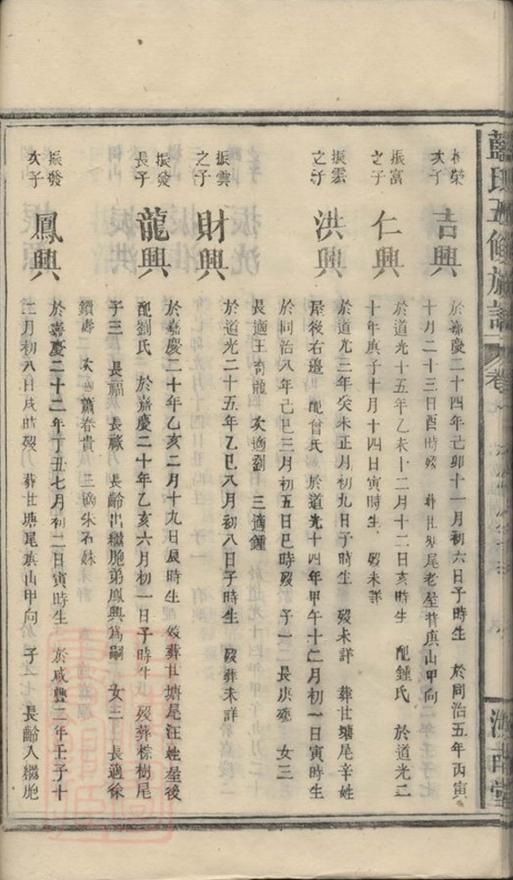 藍氏五修族譜 卷
濟南堂
振榮次子
吉興
於嘉慶二十四年己卯十一月初六日子時生 於同治五年丙寅
十月二十三日酉時歿 葬廿塘尾老屋背眞山甲向
振富之子
仁興
於道光十五年乙未十二月十二日亥時生 配鍾氏 於道光二
十年庚子十月十四日寅時生 歿未詳
振雲之子
洪興
於道光三年癸未正月初九日子時生 歿未詳 葬廿塘尾辛姓
屋後右邊 配曾氏 於道光十四年甲午十二月初一日寅時生
於同治八年己巳三月初五日巳時歿 子一 長庚 女三
長適王 次適劉 三適鍾
振雲之子
財興
於道光二十五年乙巳八月初八日子時生 歿葬未詳
振發長子
龍興
於嘉慶二十年乙亥二月十九日辰時生 歿葬廿塘尾汪姓屋後
配劉氏 於嘉慶二十年乙亥六月初一日子時生 歿葬棕樹尾
子三 長福 長祿 長齡出繼胞弟鳳興爲嗣 女三 長適徐
鎖壽 次適蕭春貴 三適朱石妹
振發次子
鳳興
於嘉慶二十二年丁丑七月初二日寅時生 於咸豐二年壬子十
二月初八日戌時歿 葬廿塘尾眞山甲向 子 長齡入繼胞